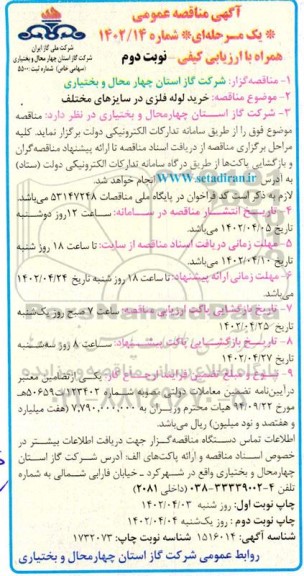 آگهی مناقصه عمومی
※ یک مرحله‌ای※ شماره ۱۴۰۲/۱۴
همراه با ارزیابی کیفی - نوبت دوم
شرکت ملی گاز ایران
شرکت گاز استان چهار محال و بختیاری
(سهامی خاص) شماره ثبت ۵۵۰۰
۱- مناقصه‌گزار: شرکت گاز استان چهار محال و بختیاری
۲- موضوع مناقصه: خرید لوله فلزی در سایزهای مختلف
۳- شرکت گاز استان چهارمحال و بختیاری در نظر دارد: مناقصه
موضوع فوق را از طریق سامانه تدارکات الکترونیکی دولت برگزار نماید. کلیه
مراحل برگزاری مناقصه از دریافت اسناد مناقصه تا ارائه پیشنهاد مناقصه‌گران
و بازگشایی پاکت‌ها از طریق درگاه سامانه تدارکات الکترونیکی دولت (ستاد)
به آدرس www.setadiran.ir انجام خواهد شد.
لازم به ذکر است کد فراخوان در پایگاه ملی مناقصات ۵۳۱۴۷۲۴۸ می‌باشد.
۴- تاریخ انتشار مناقصه در سامانه: ساعت ۱۲ روز دوشنبه
تاریخ ۱۴۰۲/۰۴/۰۵ می‌باشد.
۵- مهلت زمانی دریافت اسناد مناقصه از سایت: تا ساعت ۱۸ روز شنبه
تاریخ ۱۴۰۲/۰۴/۱۰ می‌باشد.
۶- مهلت زمانی ارائه پیشنهاد: تا ساعت ۱۸ روز شنبه تاریخ ۱۴۰۲/۰۴/۲۴
می‌باشد.
۷- تاریخ بازگشایی پاکت ارزیابی مناقصه: ساعت ۷ صبح روز یک‌شنبه
تاریخ ۱۴۰۲/۰۴/۲۵
۸- تاریخ بازگشایی پاکت پیشنهاد: ساعت ۸ روز سه‌شنبه
تاریخ ۱۴۰۲/۰۴/۲۷
۹- نوع و مبلغ تضمین فرآیند ارجاع کار: یکی از تضامین معتبر
در آیین‌نامه تضمین معاملات دولتی مصوبه شماره ۱۲۳۴۰۲/ت۵۰۶۵۹هـ
مورخ ۹۴/۰۹/۲۲ هیات محترم وزیران به ۷,۷۹۰,۰۰۰,۰۰۰ (هفت میلیارد
و هفتصد و نود میلیون) ریال می‌باشد.
اطلاعات تماس دستگاه مناقصه‌گزار جهت دریافت اطلاعات بیشتر در
خصوص اسناد مناقصه و ارائه پاکت‌های الف: آدرس شرکت گاز استان
چهارمحال و بختیاری واقع در شهرکرد - خیابان فارابی شمالی به شماره
تلفن ۴-۳۳۳۳۹۰۰۲-۰۳۸ (داخلی ۲۰۸۱)
چاپ نوبت اول: روز شنبه ۱۴۰۲/۰۴/۰۳
چاپ نوبت دوم : روز یک‌شنبه ۱۴۰۲/۰۴/۰۴
شناسه آگهی: ۱۵۱۶۰۱۴ شناسه نوبت چاپ: ۱۷۳۲۰۷۳
روابط عمومی شرکت گاز استان چهارمحال و بختیاری